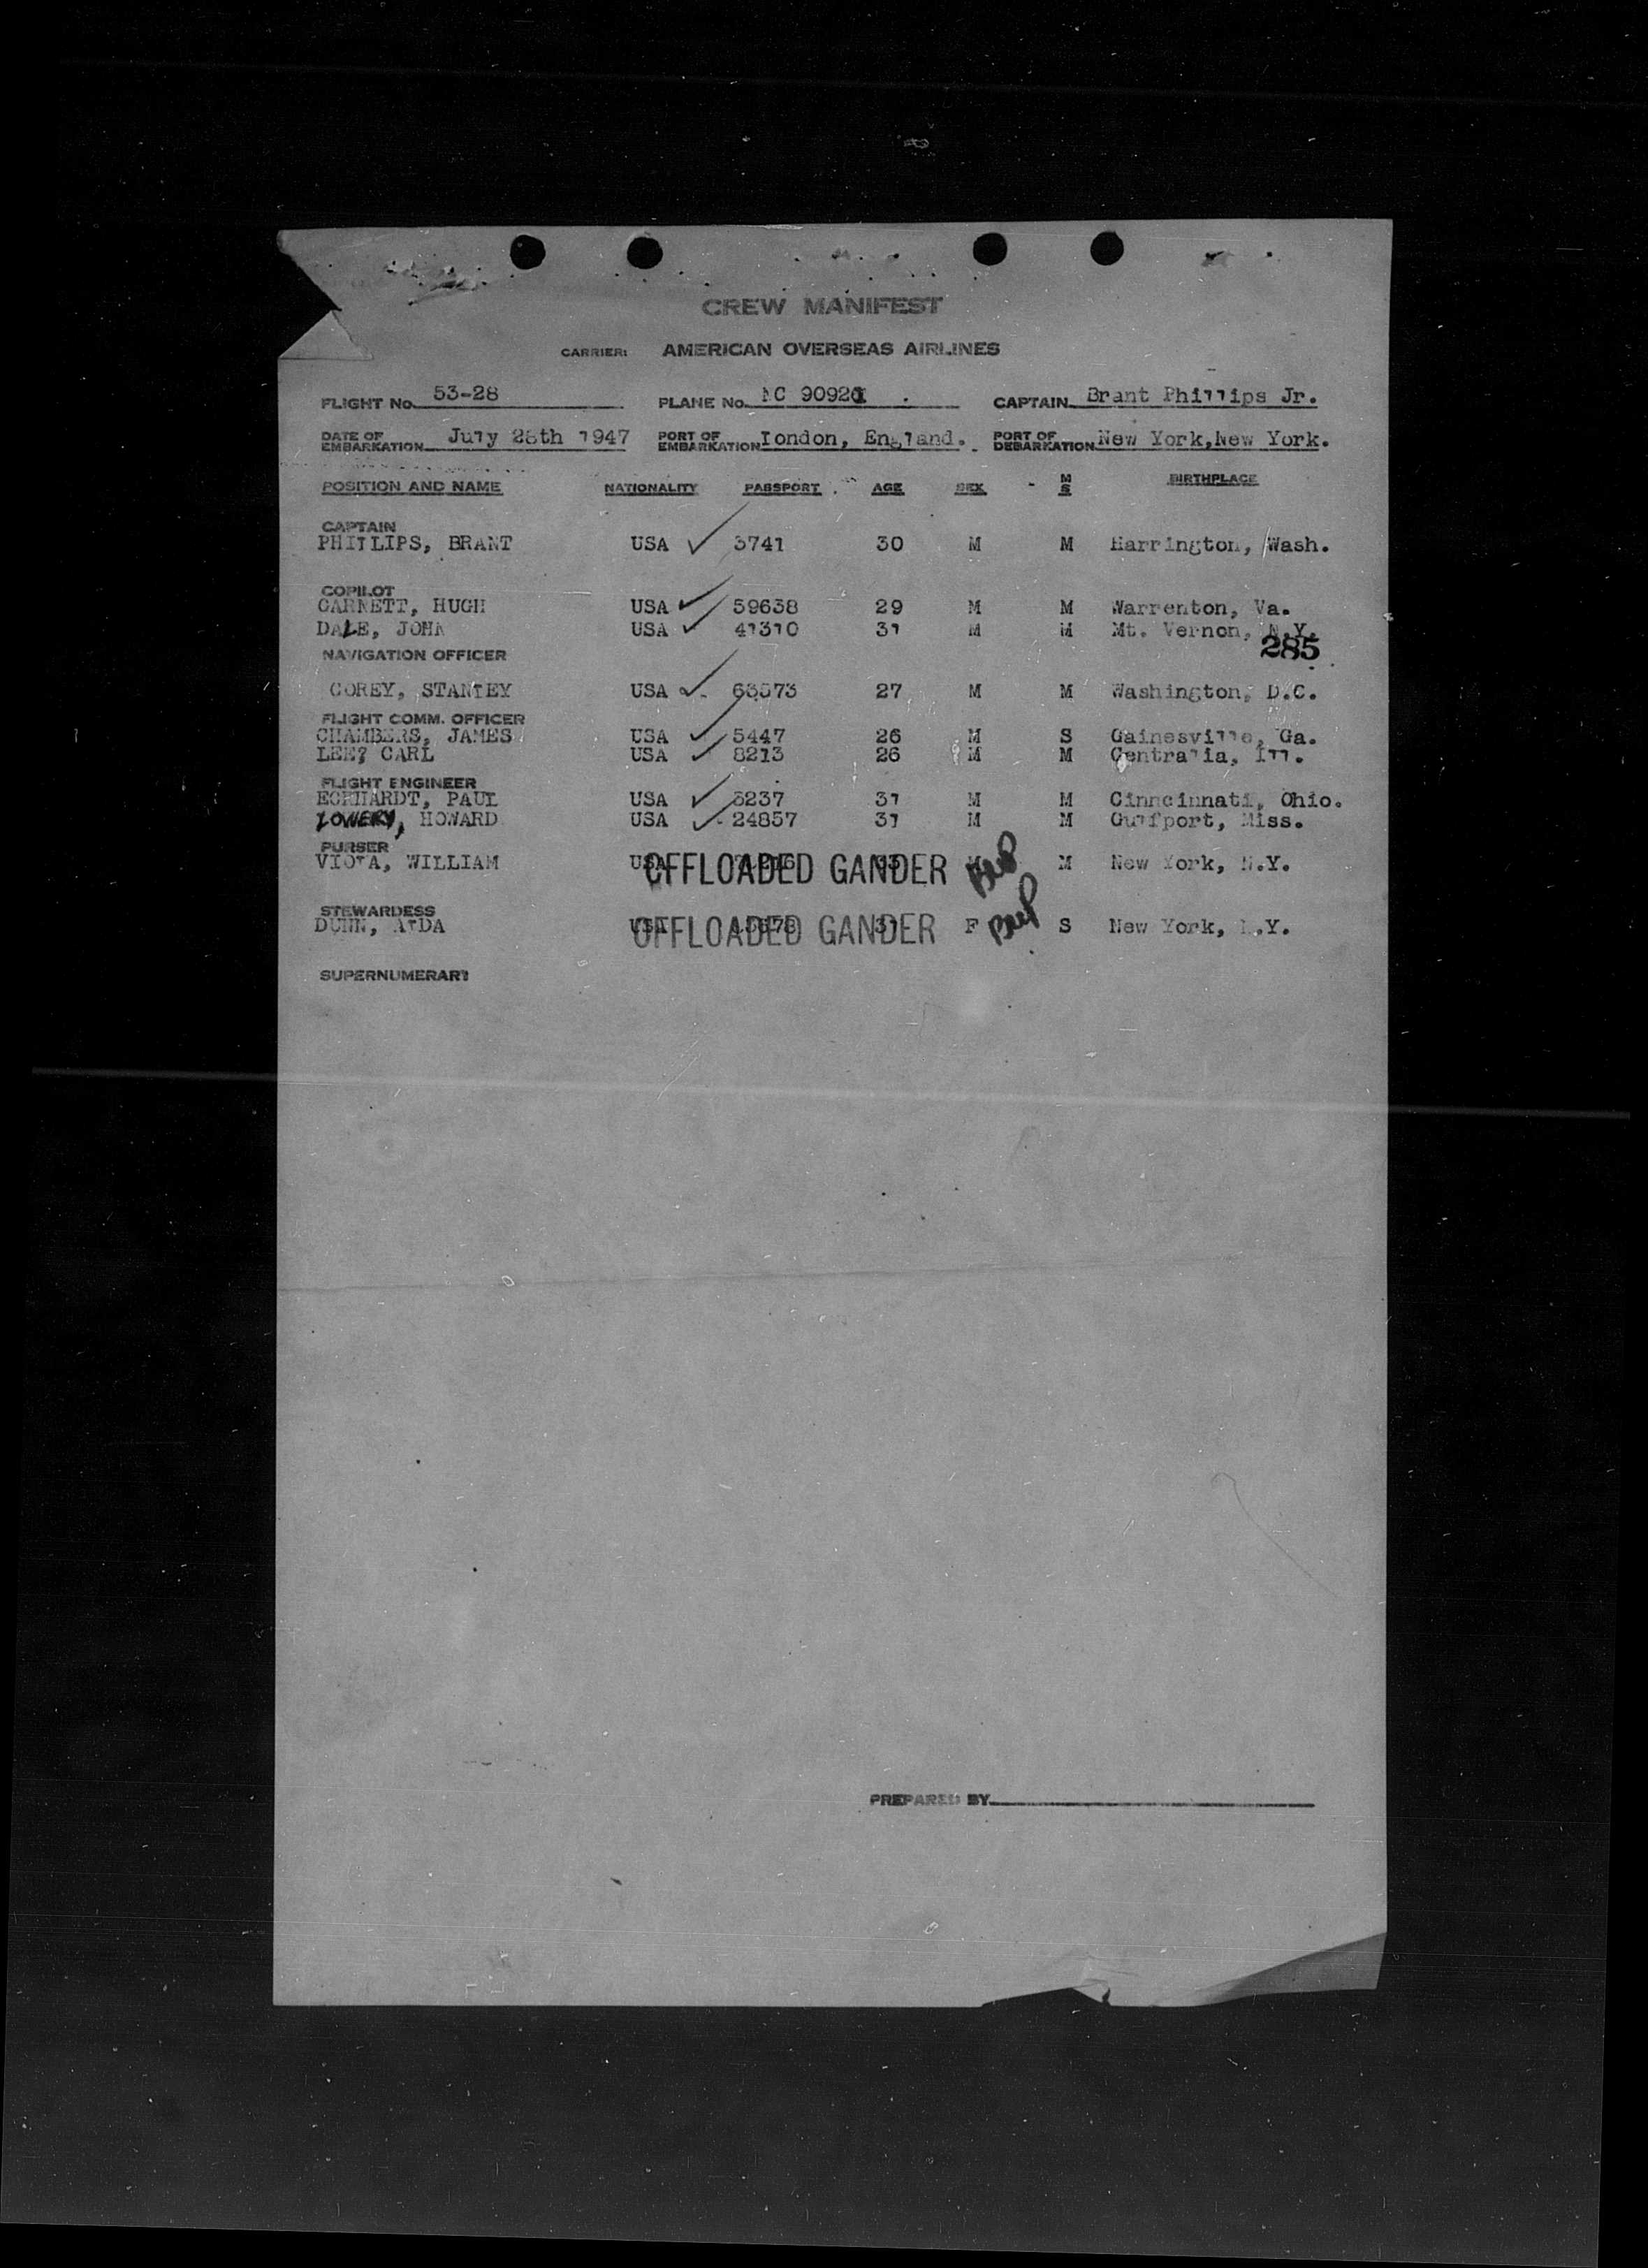 CREW MANIFEST
CARRIER: AMERICAN OVERSEAS AIRLINES
FLIGHT No. 53-28 PLANE No. NC 90921 . CAPTAIN Brant Phillips Jr.
DATE OF EMBARKATION July 28th 1947 PORT OF EMBARKATION London, England. PORT OF DEBARKATION New York, New York.
POSITION AND NAME NATIONALITY PASSPORT AGE SEX M S BIRTHPLACE
CAPTAIN
PHILLIPS, BRANT USA 3741 30 M M Harrington, Wash.
COPILOT
GARNETT, HUGH USA 59638 29 M M Warrenton, Va.
DALE, JOHN USA 41310 31 M M Mt. Vernon, N.Y.
285
NAVIGATION OFFICER
COREY, STANLEY USA 63573 27 M M Washington, D.C.
FLIGHT COMM. OFFICER
CHAMBERS, JAMES USA 5447 26 M S Gainesville, Ga.
LEE, CARL USA 8213 26 M M Centralia, Ill.
FLIGHT ENGINEER
ECKHARDT, PAUL USA 3237 31 M M Cinncinnati, Ohio.
LOWERY, HOWARD USA 24857 31 M M Gulfport, Miss.
PURSER
VIOLA, WILLIAM USA OFFLOADED GANDER M New York, N.Y.
STEWARDESS
DUNN, ALDA USA OFFLOADED GANDER F S New York, N.Y.
SUPERNUMERARY
PREPARED BY